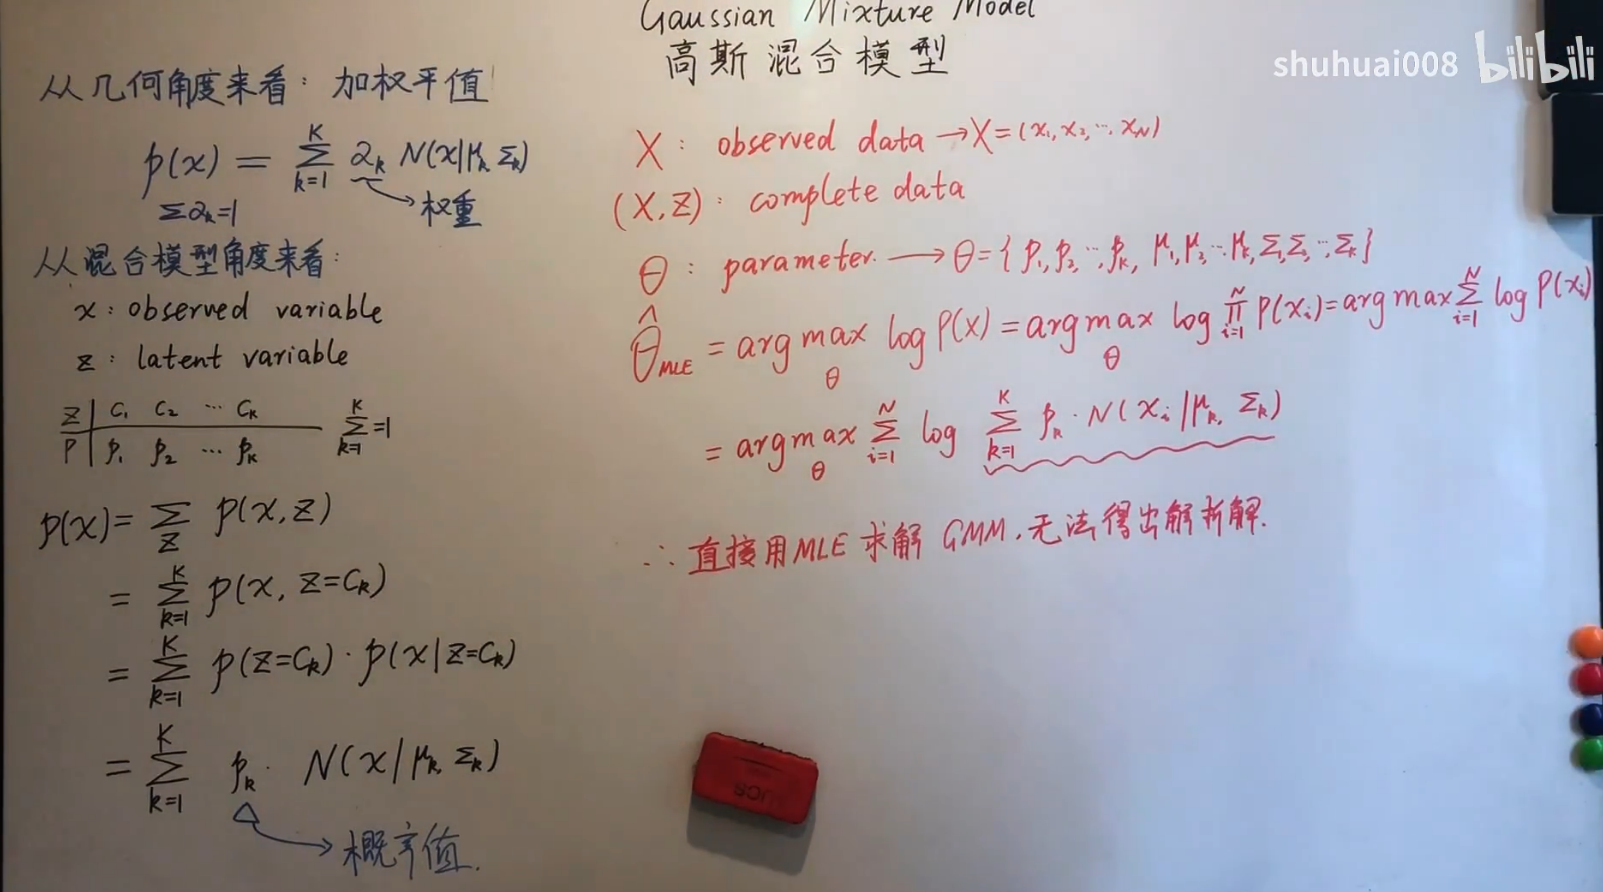 Gaussian Mixture Model
高斯混合模型
shuhuai008 bilibili
从几何角度来看: 加权平值
p(x) = ∑_{k=1}^{K} α_k N(x|μ_k, Σ_k)
∑α_k=1
→ 权重
从混合模型角度来看:
x: observed variable
z: latent variable
Z | C₁ C₂ ⋯ C_k
P | p₁ p₂ ⋯ p_k
∑_{k=1}^{K} =1
p(x) = ∑_Z p(x, z)
= ∑_{k=1}^{K} p(x, z=C_k)
= ∑_{k=1}^{K} p(z=C_k) · p(x|z=C_k)
= ∑_{k=1}^{K} p_k · N(x|μ_k, Σ_k)
→ 概率值.
X: observed data → X=(x₁, x₂, ⋯, x_N)
(X,Z): complete data
θ: parameter. → θ={p₁, p₂, ⋯, p_k, μ₁, μ₂, ⋯ μ_k, Σ₁, Σ₂, ⋯, Σ_k}
θ̂_MLE = arg max_θ log P(X) = arg max_θ log ∏_{i=1}^{N} P(x_i) = arg max ∑_{i=1}^{N} log P(x_i)
= arg max_θ ∑_{i=1}^{N} log ∑_{k=1}^{K} p_k · N(x_i|μ_k, Σ_k)
∴ 直接用MLE 求解 GMM, 无法得出解析解.